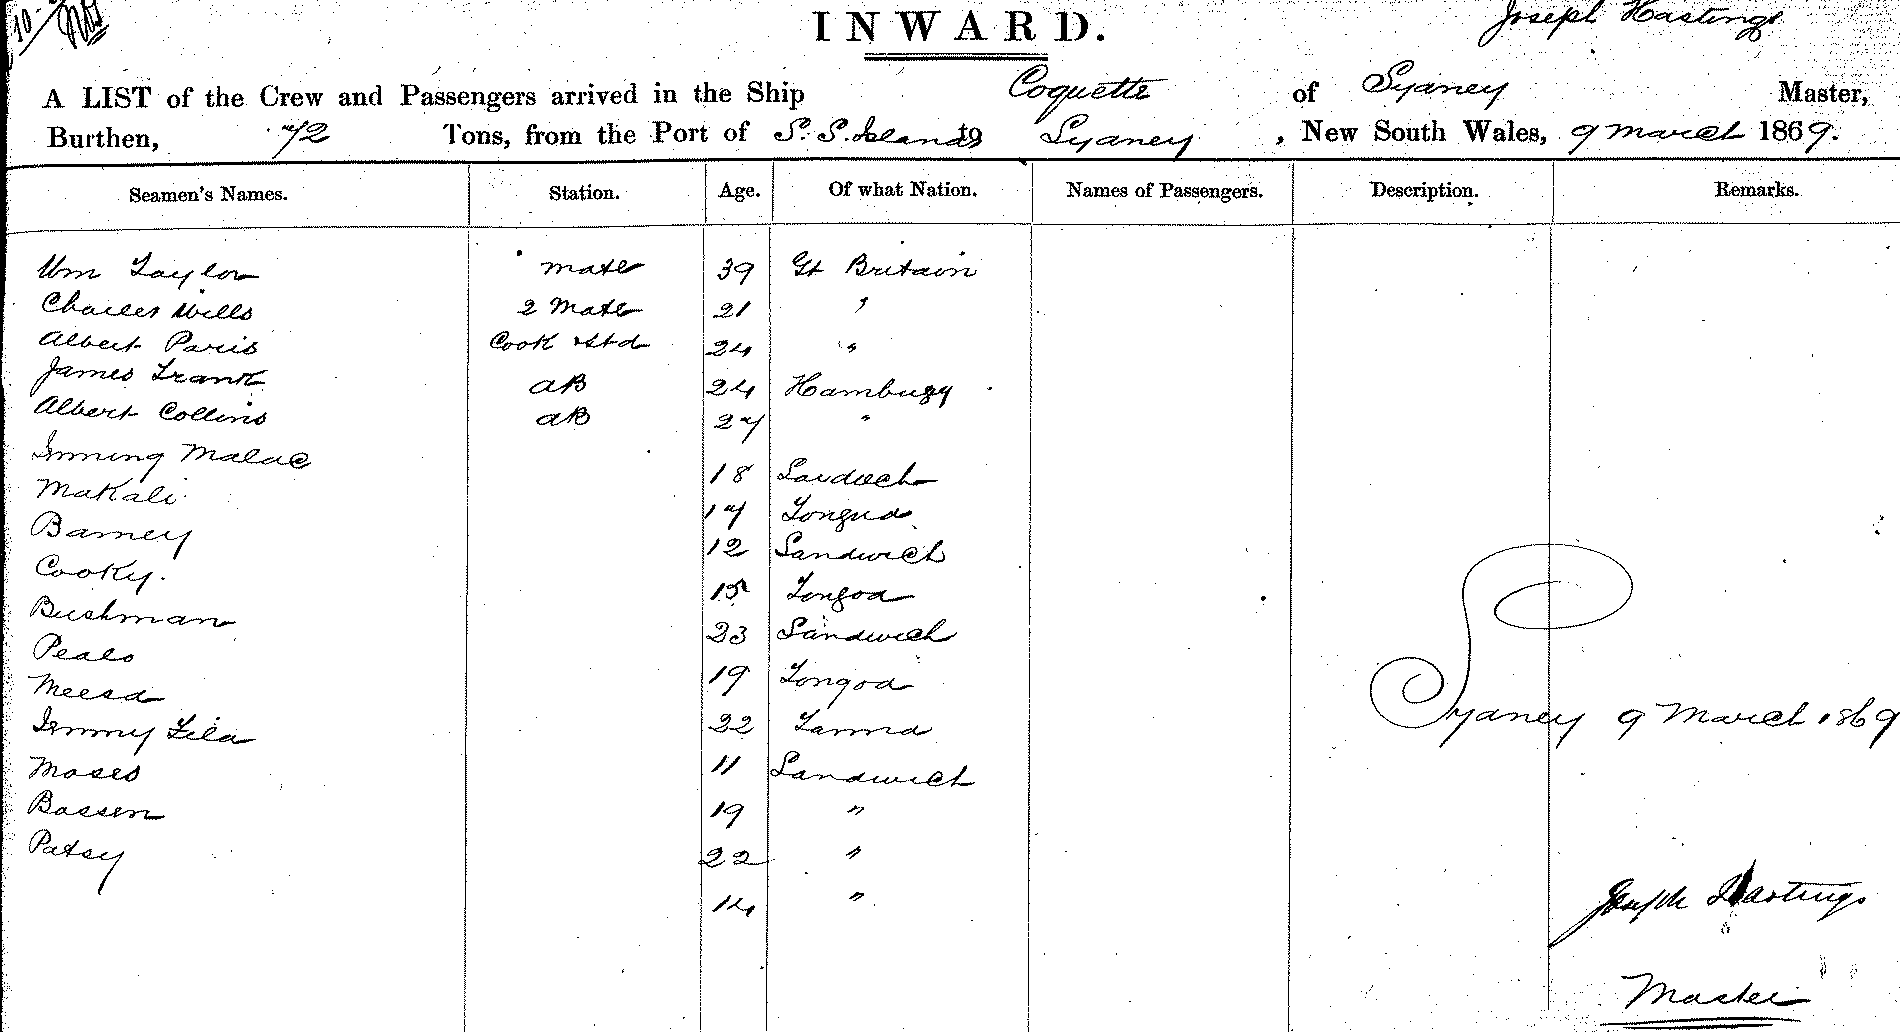 INWARD.
Joseph Hastings
A LIST of the Crew and Passengers arrived in the Ship Coquette of Sydney Master,
Burthen, 72 Tons, from the Port of S. S. Islands to Sydney, New South Wales, 9 March 1869.
Seamen's Names. Station. Age. Of what Nation. Names of Passengers. Description. Remarks.
Wm Taylor mate 39 Gt Britain
Charles Wills 2 Mate 21 "
Albert Paris Cook & Std 24 "
James Frank AB 24 Hamburgh
Albert Collins AB 27 "
Malac 18 Sandwich
Makali 17 Tongua
Barney 12 Sandwich
Cooky. 15 Tongoa
Bushman 23 Sandwich
Pealo 19 Tongoa
Meesa 22 Tanna
Jemmy Fila 11 Sandwich
Moses 19 "
Bassen 22 "
Patsy 14 "
Sydney 9 March 1869
Joseph Hastings
Master